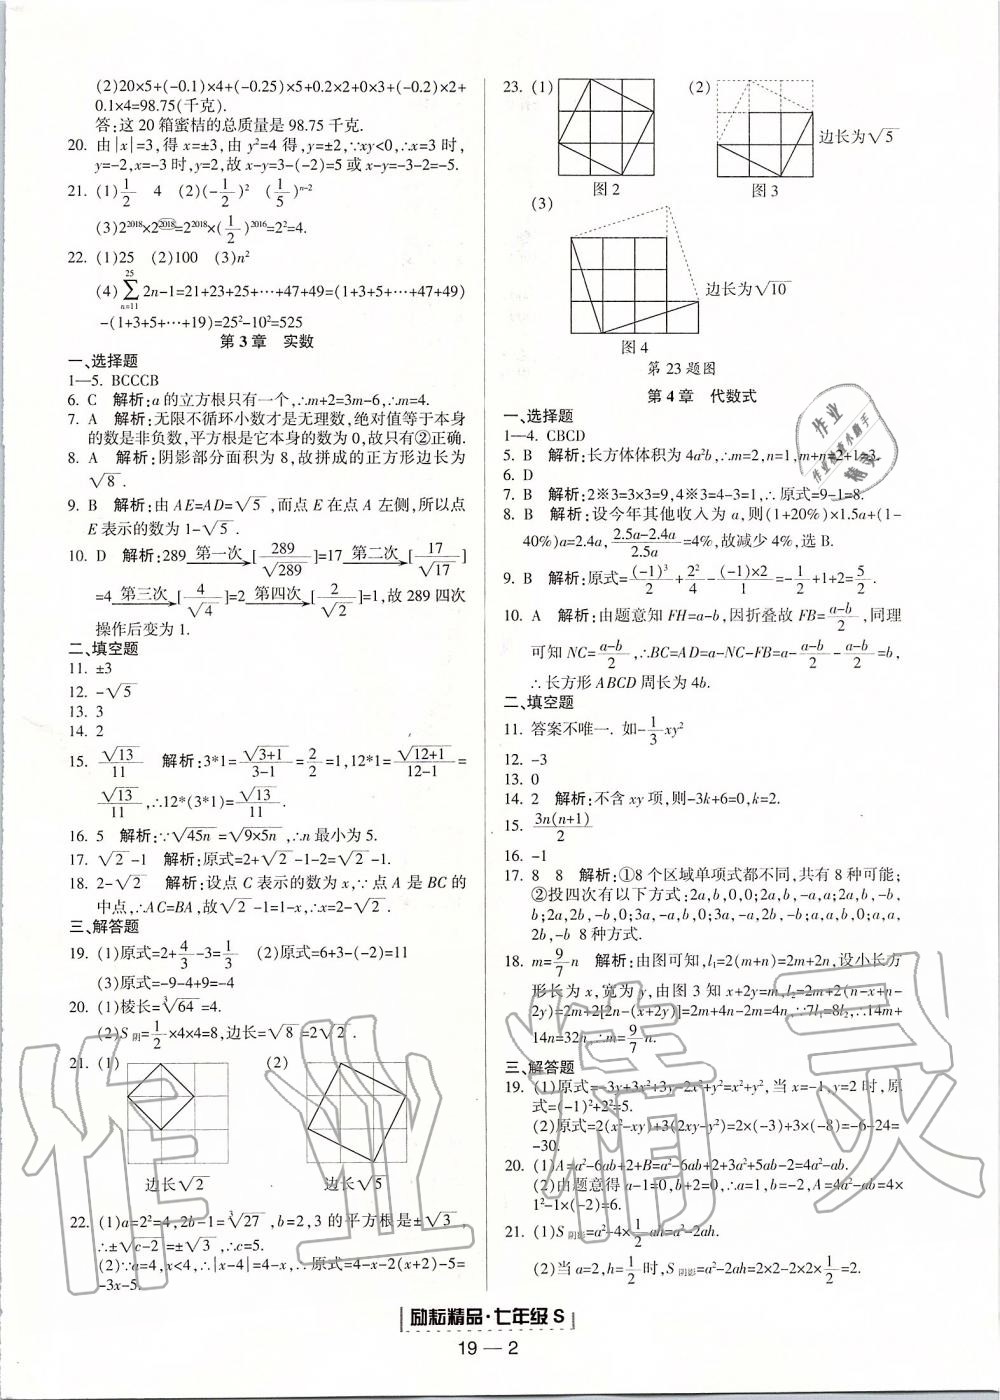 (2)20×5+(-0.1)×4+(-0.25)×5+0.2×2+0×3+(-0.2)×2+
0.1×4=98.75(千克).
答:这20箱蜜桔的总质量是98.75千克.
20. 由|x|=3,得x=±3,由y²=4得,y=±2,∵xy<0,∴x=3时,
y=-2,x=-3时,y=2,故x-y=3-(-2)=5或x-y=-3-2=-5.
21. (1)1/2 4 (2)(-1/2)² (1/5)ⁿ⁻²
(3)2²⁰¹⁸×2^{②⓪①⑧}=2²⁰¹⁸×(1/2)²⁰¹⁶=2²=4.
22. (1)25 (2)100 (3)n²
(4)∑(n=11→25) 2n-1=21+23+25+…+47+49=(1+3+5+…+47+49)
-(1+3+5+…+19)=25²-10²=525
第3章 实数
一、选择题
1—5. BCCCB
6. C 解析:a的立方根只有一个,∴m+2=3m-6,∴m=4.
7. A 解析:无限不循环小数才是无理数,绝对值等于本身
的数是非负数,平方根是它本身的数为0,故只有②正确.
8. A 解析:阴影部分面积为8,故拼成的正方形边长为
√8.
9. B 解析:由AE=AD=√5,而点E在点A左侧,所以点
E表示的数为1-√5.
10. D 解析:289 第一次→[289/√289]=17 第二次→[17/√17]
=4 第三次→[4/√4]=2 第四次→[2/√2]=1,故289四次
操作后变为1.
二、填空题
11. ±3
12. -√5
13. 3
14. 2
15. √13/11 解析:3*1=√(3+1)/(3-1)=2/2=1,12*1=√(12+1)/(12-1)=
√13/11,∴12*(3*1)=√13/11.
16. 5 解析:∵√45n=√9×5n,∴n最小为5.
17. √2-1 解析:原式=2+√2-1-2=√2-1.
18. 2-√2 解析:设点C表示的数为x,∵点A是BC的
中点,∴AC=BA,故√2-1=1-x,∴x=2-√2.
三、解答题
19. (1)原式=2+4/3-3=1/3 (2)原式=6+3-(-2)=11
(3)原式=-9-4+9=-4
20. (1)棱长=³√64=4.
(2)S阴=1/2×4×4=8,边长=√8=2√2.
21. (1) (2)
边长√2 边长√5
22. (1)a=2²=4,2b-1=³√27,b=2,3的平方根是±√3,
∴±√(c-2)=±√3,∴c=5.
(2)∵a=4,x<4,∴|x-4|=4-x,∴原式=4-x-2(x+2)-5=
-3x-5.
23. (1) (2)
边长为√5
图2 图3
(3)
边长为√10
图4
第23题图
第4章 代数式
一、选择题
1—4. CBCD
5. B 解析:长方体体积为4a²b,∴m=2,n=1,m+n=2+1=3.
6. D
7. B 解析:2※3=3×3=9,4※3=4-3=1,∴原式=9-1=8.
8. B 解析:设今年其他收入为a,则(1+20%)×1.5a+(1-
40%)a=2.4a,(2.5a-2.4a)/2.5a=4%,故减少4%,选B.
9. B 解析:原式=(-1)³/2+2²/4-(-1)×2/1=-1/2+1+2=5/2.
10. A 解析:由题意知FH=a-b,因折叠故FB=(a-b)/2,同理
可知NC=(a-b)/2,∴BC=AD=a-NC-FB=a-(a-b)/2-(a-b)/2=b,
∴长方形ABCD周长为4b.
二、填空题
11. 答案不唯一. 如-1/3xy²
12. -3
13. 0
14. 2 解析:不含xy项,则-3k+6=0,k=2.
15. 3n(n+1)/2
16. -1
17. 8 8 解析:①8个区域单项式都不同,共有8种可能;
②投四次有以下方式:2a,b,0,0;2a,b,-a,a;2a,b,-b,
b;2a,2b,-b,0;3a,-a,b,0;3a,-a,2b,-b;a,a,b,0;a,a,
2b,-b 8种方式.
18. m=9/7n 解析:由图可知,l₁=2(m+n)=2m+2n,设小长方
形长为x,宽为y,由图3知x+2y=m,l₂=2m+2(n-x+n-
2y)=2m+2[2n-(x+2y)]=2m+4n-2m=4n,∵7l₁=8l₂,∴14m+
14n=32n,∴m=9/7n.
三、解答题
19. (1)原式=-3y+3x²+3y-2x²+y²=x²+y²,当x=-1,y=2时,原
式=(-1)²+2²=5.
(2)原式=2(x²-xy)+3(2xy-y²)=2×(-3)+3×(-8)=-6-24=
-30.
20. (1)A=a²-6ab+2+B=a²-6ab+2+3a²+5ab-2=4a²-ab.
(2)由题意得a-1=0,b+2=0,∴a=1,b=-2,A=4a²-ab=4×
1²-1×(-2)=6.
21. (1)S阴影=a²-4×1/2ah=a²-2ah.
(2)当a=2,h=1/2时,S阴影=a²-2ah=2×2-2×2×1/2=2.
励耘精品·七年级S
19—2
作业精灵
作业检查小助手
作业精灵